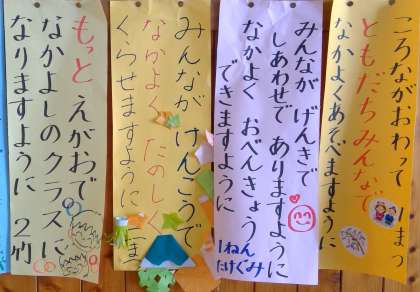 ころながおわって 1まつ
ともだちみんなで
なかよくあそべますように
みんなが げんきで
しあわせで ありますように
なかよく おべんきょう
できますように
1ねん
たけぐみ
みんなが けんこうで
なかよく たのしく
くらせますように
もっと えがおで
なかよしのクラスに
なりますように 2竹